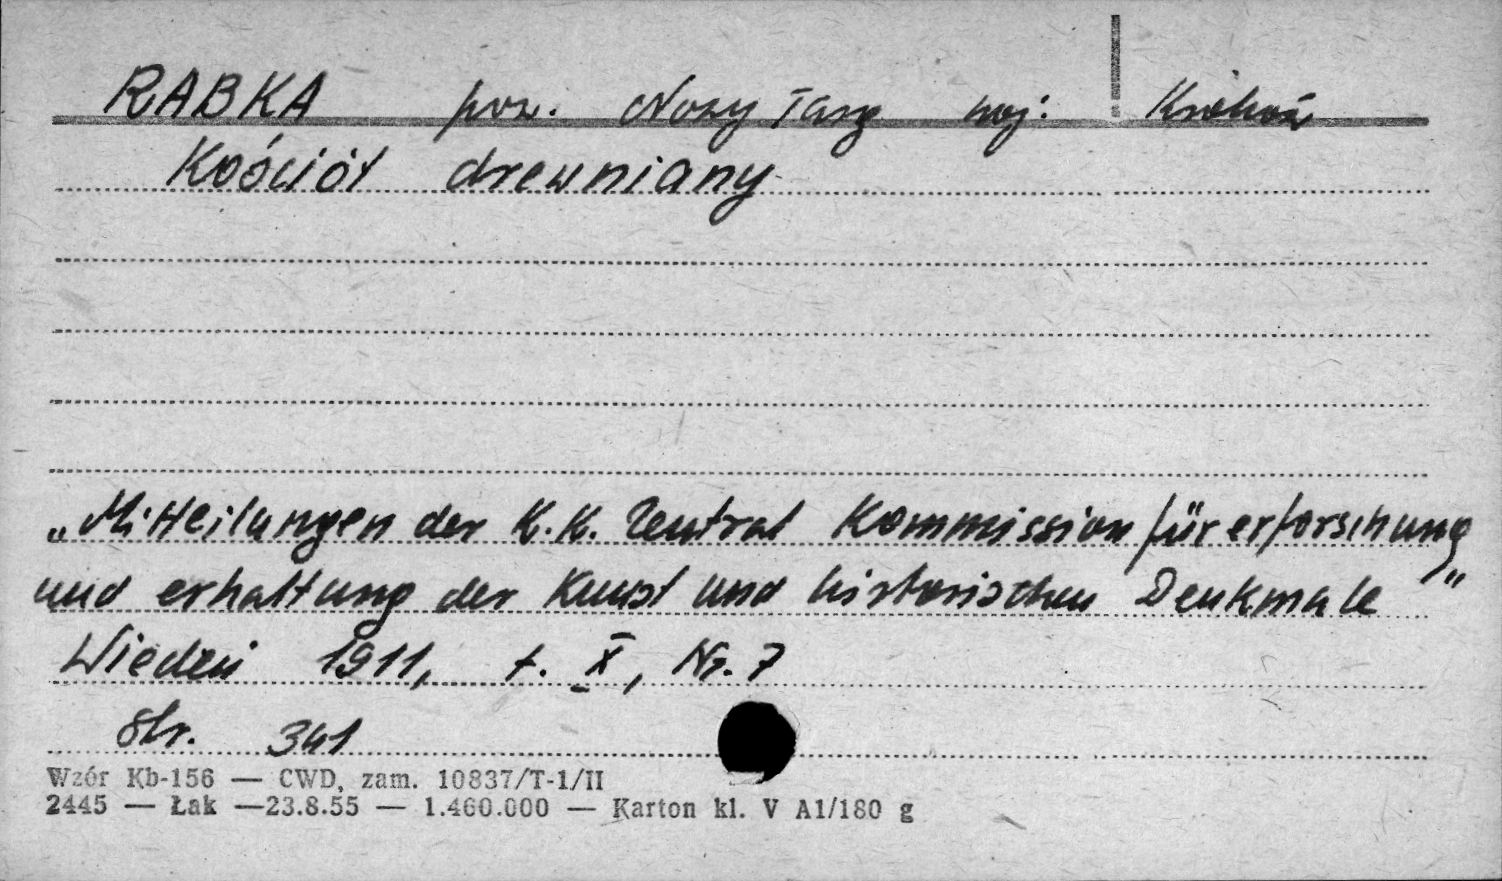 RABKA pow. Nowy Targ woj. Kraków
Kościół drewniany
„Mitteilungen der K.K. Zentral Kommission für erforschung
und erhaltung der Kunst und historischen Denkmale"
Wiedeń 1911, t. X, Nr. 7
Str. 341
Wzór Kb-156 — CWD, zam. 10837/T-1/II
2445 — Łak —23.8.55 — 1.460.000 — Karton kl. V A1/180 g